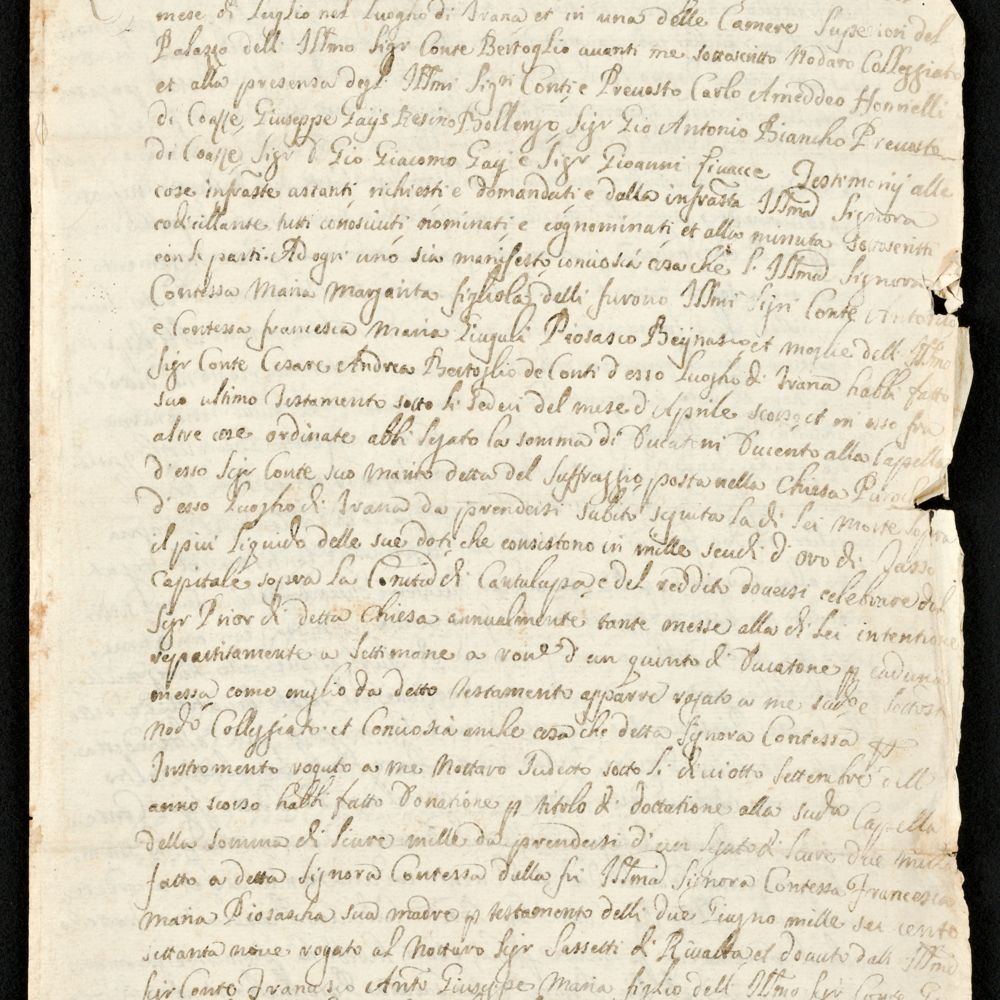 mese di Luglio nel Luogho di Trana et in una delle Camere Superiori del
Palazzo dell Illmo Sigr Conte Bertoglio avanti me sottoscritto Nodaro Colleggiato
et alla presenza degl Illmi Sigri Conti e Prevosto Carlo Ameddeo
di Coasse, Giuseppe Gays Sigr Gio Antonio Biancho Prevosto
di Coasse Sigr D. Gio Giacomo Gay e Sigr Gioanni Testimonij alle
cose infraste astanti richiesti e domandati e dalla infrasta Illma Signora
codicillante tutti conosciuti nominati e cognominati et alla minuta sottoscritti
con le parti. Ad ogn'uno sia manifesto, conciosia cosa che l'Illma Signora
Contessa Maria Margarita figliola delli furono Illmi Sigri Conte Antonio
e Contessa Francesca Maria Piosasco Beijnasco et moglie dell Illmo
Sigr Conte Cesare Andrea Bertoglio de Conti d'esso Luogho di Trana habbi fatto
suo ultimo Testamento sotto li sedeci del mese d'Aprile scorso, et in esso fra
altre cose ordinate abbi legato la somma di Ducatoni Ducento alla Cappella
d'esso Sigr Conte suo marito detta del Suffraggio, posta nella Chiesa
d'esso Luogho di Trana da prendersi subito seguita la di Lei morte sopra
il piu liquido delle sue doti che consistono in mille scudi d'oro di Tasso
Capitale sopra la Comttà di Cantalupa, e del reddito doversi celebrare dal
Sigr Prior di detta Chiesa annualmente tante messe alla di Lei intentione
repartitamente a settimane a rone d'un quinto di Ducatone p caduna
messa come meglio da detto testamento apparre rogato a me
Nodo Collegiato. et Conciosia anche cosa che detta Signora Contessa p
Instromento rogato a me Nottaro sudetto sotto li dieciotto settembre dell
anno scorso habbi fatto Donatione p titolo di dottatione alla sudta Cappella
della somma di Livre mille da prendersi d'un legato di Livre due mille
fatto a detta Signora Contessa dalla fu Illma Signora Contessa Francesca
Maria Piosascha sua madre p testamento delli due Giugno mille sei cento
settanta nove rogato al Nottaro Sigr Sassetti di Rivalta et dovuto dall Illmo
Sigr Conte Francesco Anto Giuseppe Maria figlio dell Illmo Sigr Conte